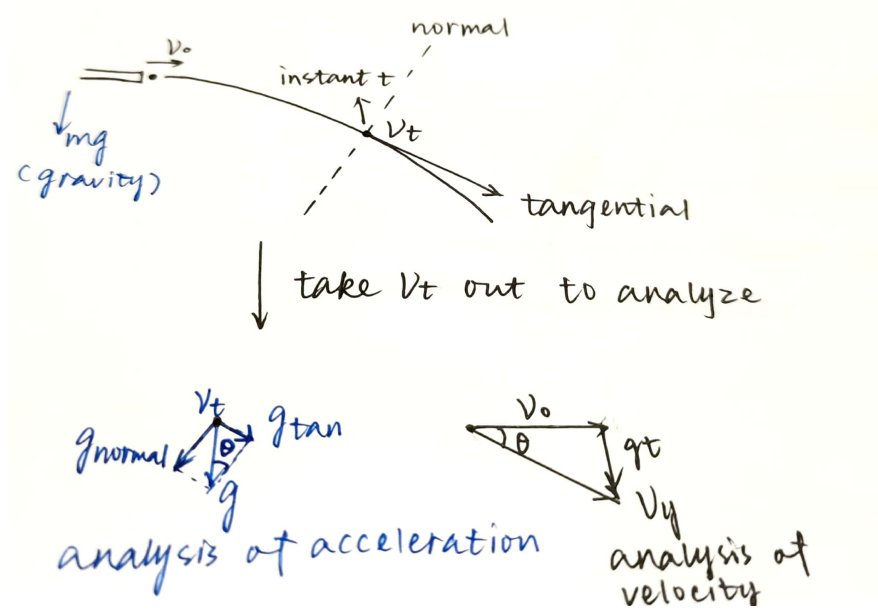 normal
V₀
instant t
Vt
mg
(gravity)
tangential
take Vt out to analyze
Vt
g tan
g normal
θ
g
V₀
θ
gt
Vy
analysis of acceleration
analysis of
velocity